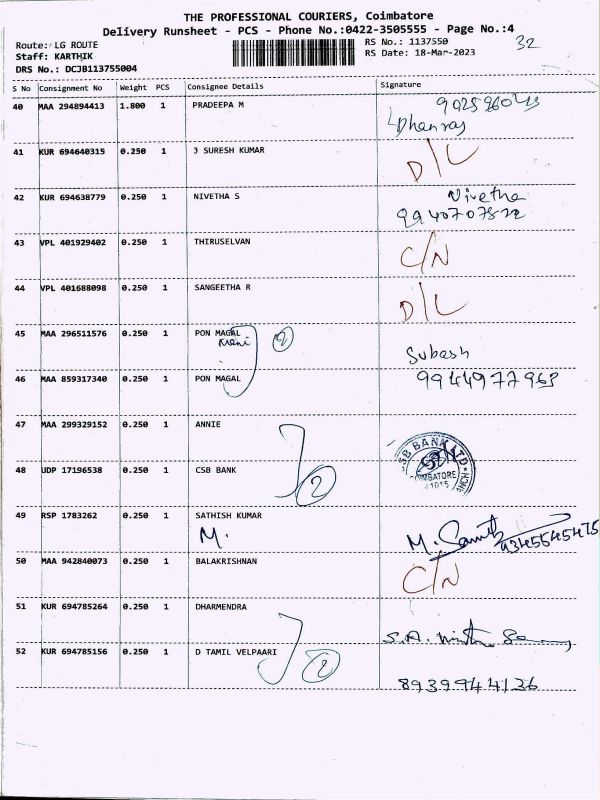 THE PROFESSIONAL COURIERS, Coimbatore
Delivery Runsheet - PCS - Phone No.:0422-3505555 - Page No.:4
Route: LG ROUTE
RS No.: 1137550
32
Staff: KARTHIK
RS Date: 18-Mar-2023
DRS No.: DCJB113755004
S No Consignment No Weight PCS Consignee Details Signature
40 MAA 294894413 1.800 1 PRADEEPA M
Dhanraj
41 KUR 694640315 0.250 1 J SURESH KUMAR D/L
42 KUR 694638779 0.250 1 NIVETHA S Nivetha
43 VPL 401929402 0.250 1 THIRUSELVAN C/N
44 VPL 401688098 0.250 1 SANGEETHA R D/L
45 MAA 296511576 0.250 1 PON MAGAL 2
Mani
Subash
46 MAA 859317340 0.250 1 PON MAGAL 9944977963
47 MAA 299329152 0.250 1 ANNIE
48 UDP 17196538 0.250 1 CSB BANK 2
CSB BANK LTD
COIMBATORE
49 RSP 1783262 0.250 1 SATHISH KUMAR
M. M.
9345545475
50 MAA 942840073 0.250 1 BALAKRISHNAN C/N
51 KUR 694785264 0.250 1 DHARMENDRA
S.A.
52 KUR 694785156 0.250 1 D TAMIL VELPAARI 2
8939944136